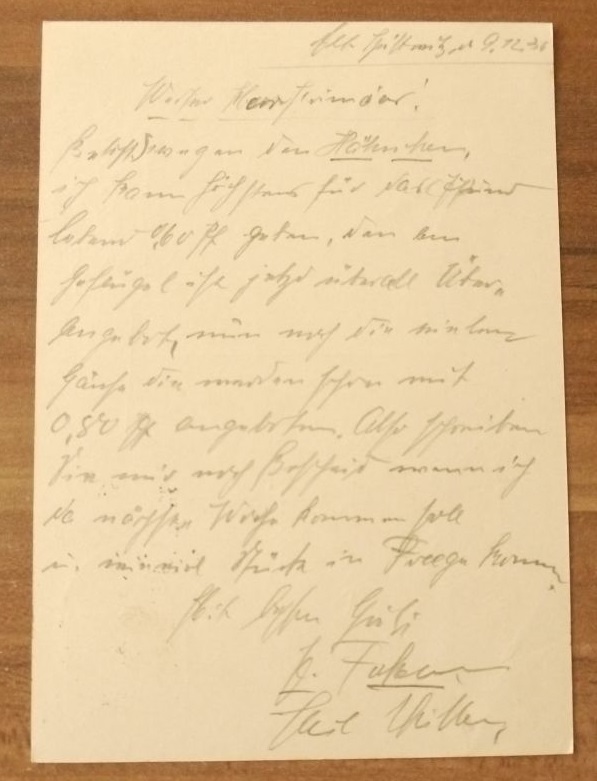 9.12.36
Werter
wegen den Hähnchen,
ich kann höchstens für das Pfund
lebend 0,60 Pf geben, den am
Geflügel ist jetzt überall Über-
Angebot, nun noch die vielen
Gänse die werden schon mit
0,80 Pf angeboten. Also schreiben
Sie mir noch Bescheid wenn ich
nächste Woche kommen soll
u. wieviel Stück in Frage komm
Mit besten Gruß
Heil Hitler,